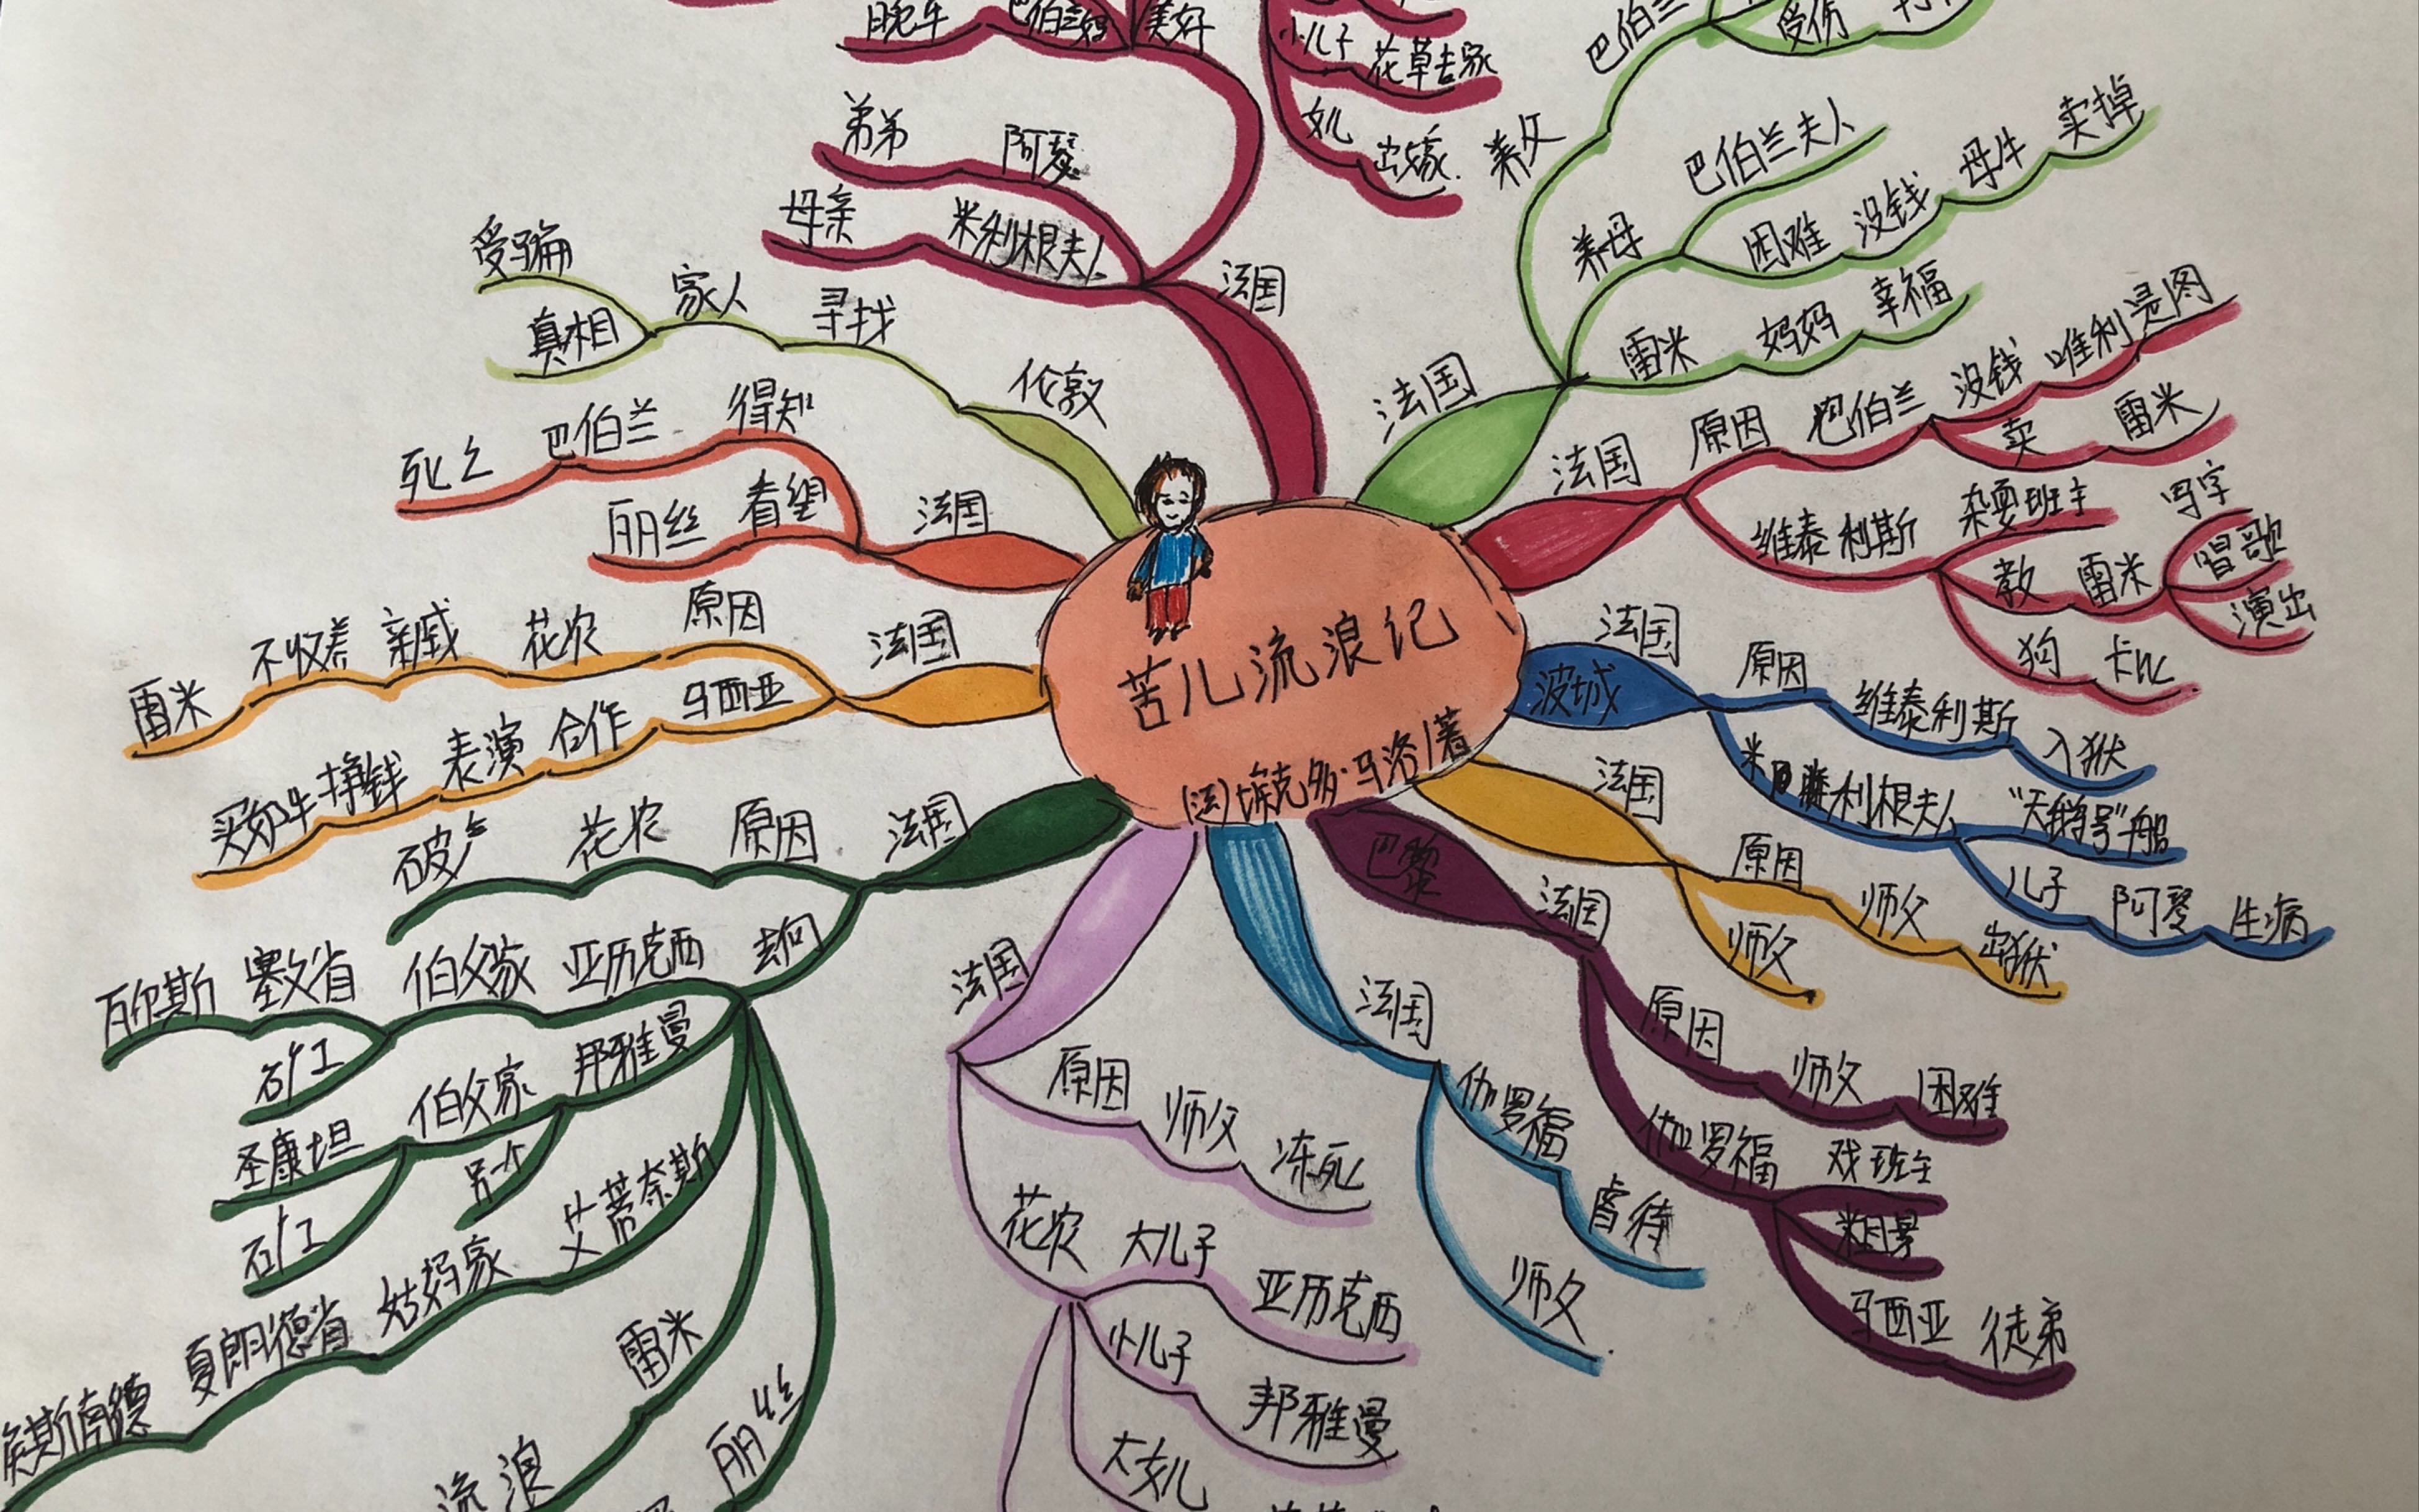 苦儿流浪记
(法)埃克多·马洛/著
法国
养父
巴伯兰
受伤
养母
巴伯兰夫人
困难 没钱 母牛 卖掉
雷米 妈妈 幸福
法国
原因 巴伯兰 没钱 唯利是图
卖 雷米
维泰利斯 杂耍班主
教 雷米
写字
唱歌
演出
狗 卡比
法国
波城
原因 维泰利斯 入狱
米利根夫人 "天鹅号"船
儿子 阿瑟 生病
法国
原因 师父 出狱
师父
巴黎
法国
原因 师父 困难
伽罗福 戏班主
粗暴
马西亚 徒弟
法国
伽罗福 虐待
师父
法国
原因 师父 冻死
花农 大儿子 亚历克西
小儿子 邦雅曼
大女儿
法国
原因 花农 破产
去向
亚历克西 伯父家 塞文省 瓦尔斯
矿工
邦雅曼 伯父家 圣康坦
另一个
矿工
艾蒂奈斯 姑妈家 夏朗德省
雷米 流浪
丽丝
法国
原因 花农 亲戚 不收养 雷米
马西亚 合作 表演 挣钱 买奶牛
法国
得知 巴伯兰 死亡
看望 丽丝
伦敦
寻找 家人
受骗
真相
法国
母亲 米利根夫人
弟弟 阿瑟
晚年 巴伯兰妈妈 美好
小儿子 花草专家
女儿 出嫁